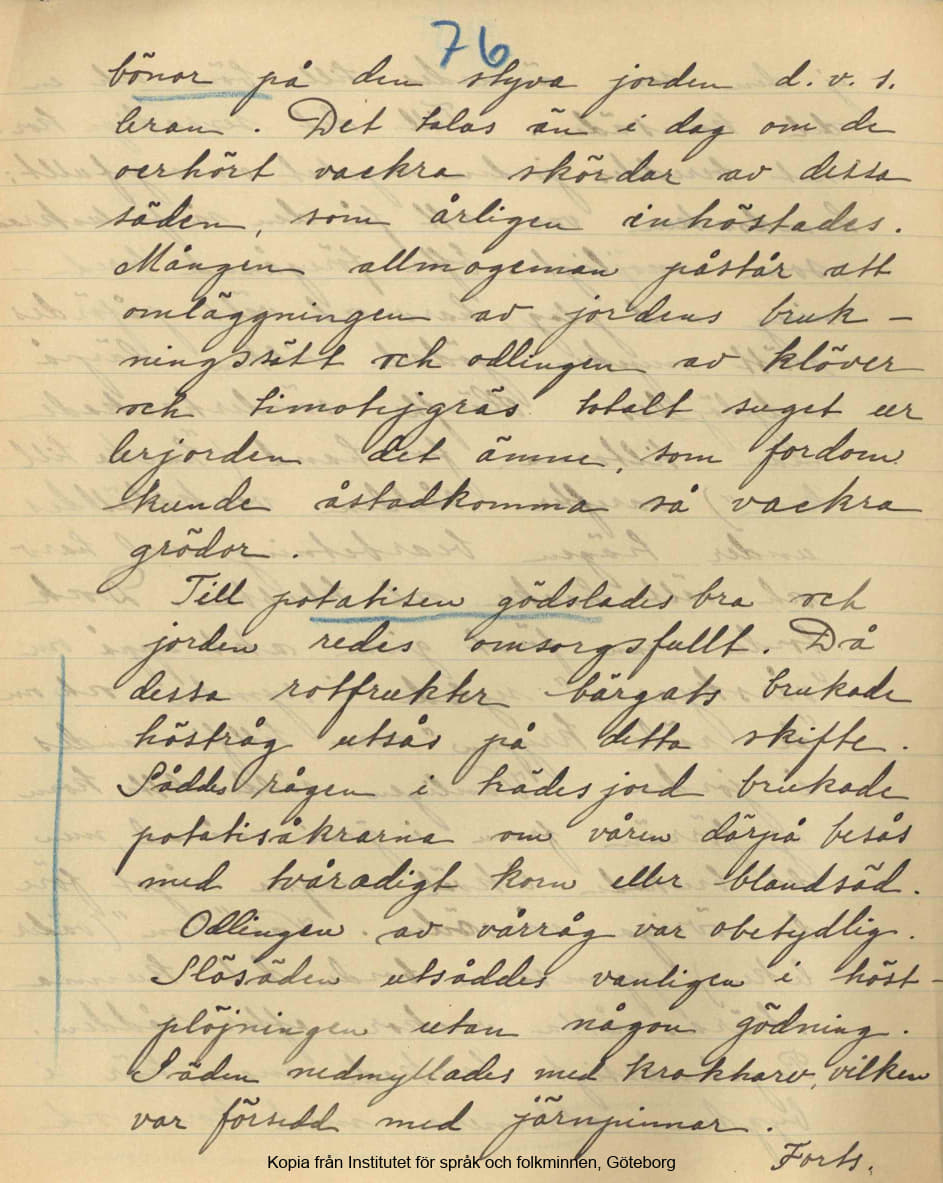 76
bönor på den styva jorden d.v.s.
leran. Det talas än i dag om de
oerhört vackra skördar av dessa
säden, som årligen inhöstades.
Mången allmogeman påstår att
omläggningen av jordens bruk-
ningssätt och odlingen av klöver
och timotejgräs totalt suget ur
lerjorden det ämne, som fordom
kunde åstadkomma så vackra
grödor.
Till potatisen gödslades bra och
jorden redes omsorgsfullt. Då
dessa rotfrukter bärgats brukade
höstråg utsås på detta skifte.
Såddes rågen i trädesjord brukade
potatisåkrarna om våren därpå besås
med tvåradigt korn eller blandsäd.
Odlingen av vårråg var obetydlig.
Slösäden utsåddes vanligen i höst-
plöjningen utan någon gödning.
Säden nedmyllades med krokharv, vilken
var försedd med järnpinnar.
Forts.
Kopia från Institutet för språk och folkminnen, Göteborg